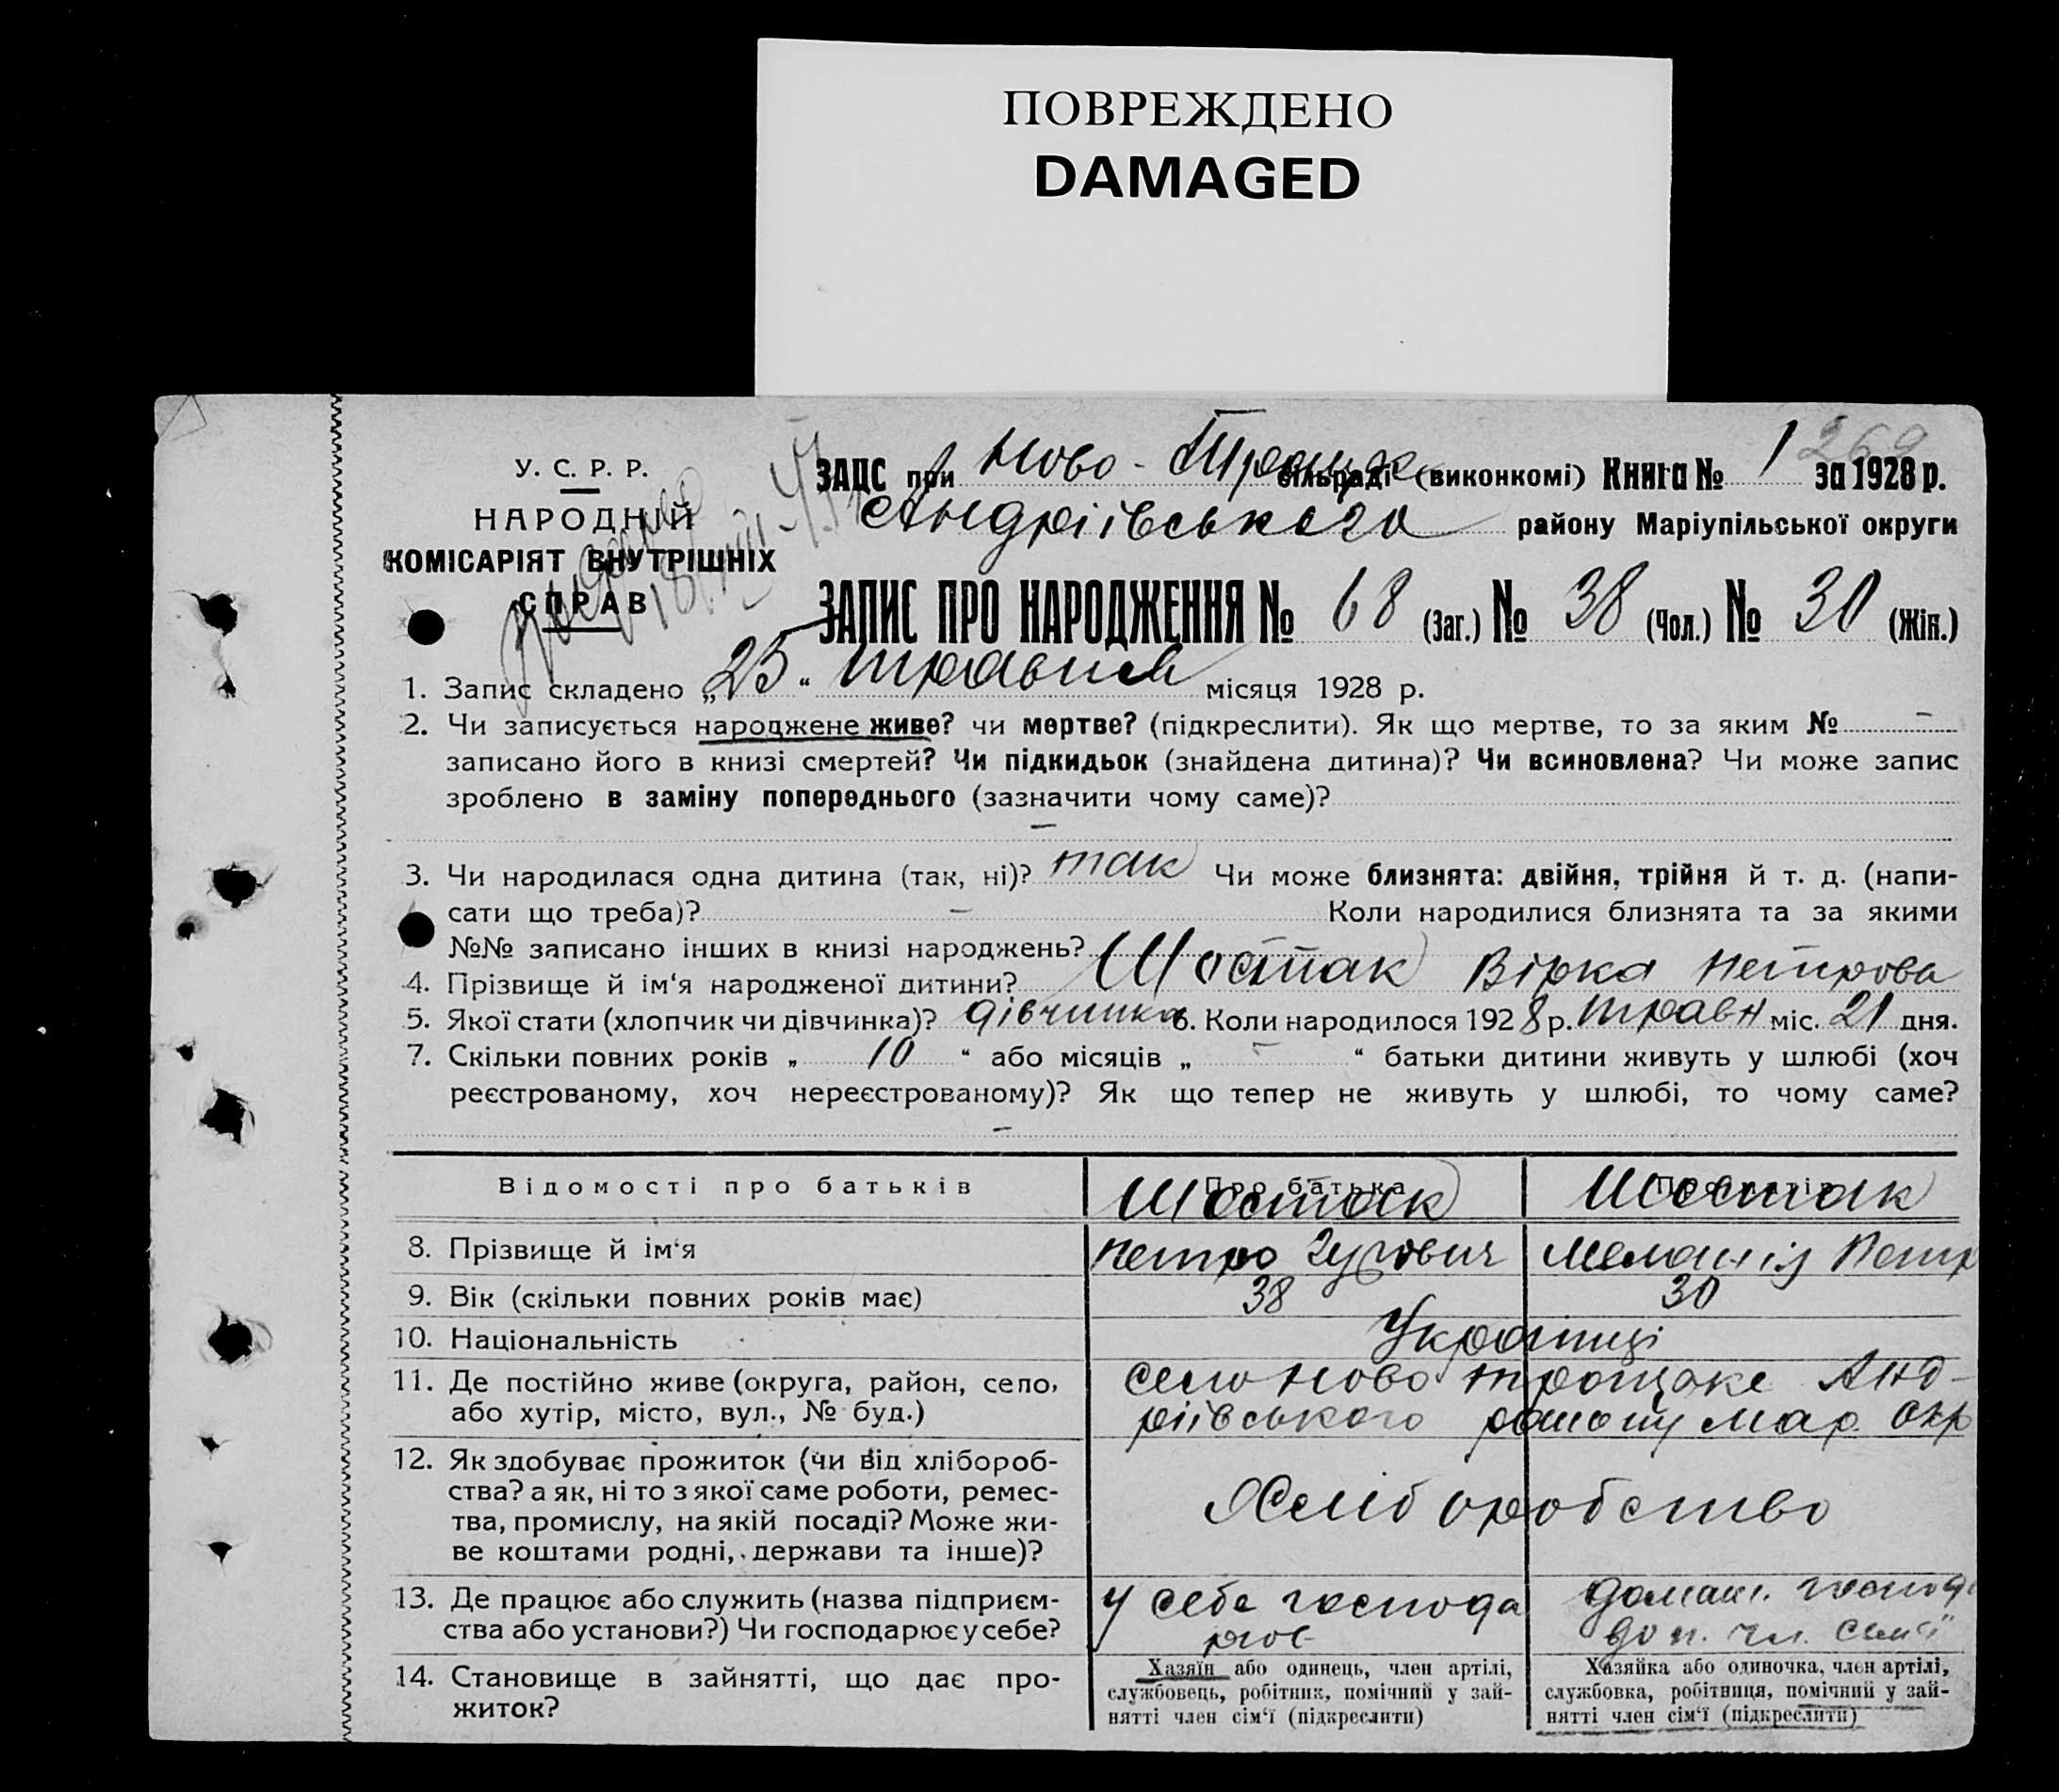 ПОВРЕЖДЕНО
DAMAGED
269
У. С. Р. Р.
НАРОДНІЙ
КОМІСАРІЯТ ВНУТРІШНІХ
СПРАВ
ЗАЦС при Ново-Троицк сільраді (виконкомі) Книга № 1 за 1928 р.
Андріївського району Маріупільської округи
ЗАПИС ПРО НАРОДЖЕННЯ № 68 (Заг.) № 38 (Чол.) № 30 (Жін.)
1. Запис складено „ 25 “ травня місяця 1928 р.
2. Чи записується народжене живе? чи мертве? (підкреслити). Як що мертве, то за яким № –
записано його в книзі смертей? Чи підкидьок (знайдена дитина)? Чи всиновлена? Чи може запис
зроблено в заміну попереднього (зазначити чому саме)?
–
3. Чи народилася одна дитина (так, ні)? так Чи може близнята: двійня, трійня й т. д. (напи-
сати що треба)? – Коли народилися близнята та за якими
№№ записано інших в книзі народжень?
4. Прізвище й ім‘я народженої дитини? Шостак Вірка Петрова
5. Якої стати (хлопчик чи дівчинка)? дівчинка 6. Коли народилося 1928 р. травн міс. 21 дня.
7. Скільки повних років „ 10 “ або місяців „ – “ батьки дитини живуть у шлюбі (хоч
реєстрованому, хоч нереєстрованому)? Як що тепер не живуть у шлюбі, то чому саме?
–
Відомості про батьків Про батька Шостак Шостак
8. Прізвище й ім‘я Петро Меланія Петр
9. Вік (скільки повних років має) 38 30
10. Національність Українці
11. Де постійно живе (округа, район, село, село Ново Троицьке Анд-
або хутір, місто, вул., № буд.) ріївського району Мар. Окр
12. Як здобуває прожиток (чи від хлібороб-
ства? а як, ні то з якої саме роботи, ремес- Хліборобство
тва, промислу, на якій посаді? Може жи-
ве коштами родні, держави та інше)?
13. Де працює або служить (назва підприєм- у себе господа домаш. господ
ства або установи?) Чи господарює у себе? рює доп. чл. сем'ї
14. Становище в зайнятті, що дає про-
житок?
Хазяїн або одинець, член артілі,
службовець, робітник, помічний у зай-
нятті член сім‘ї (підкреслити)
Хазяйка або одиночка, член артілі,
службовка, робітниця, помічний у зай-
нятті член сім‘ї (підкреслити)